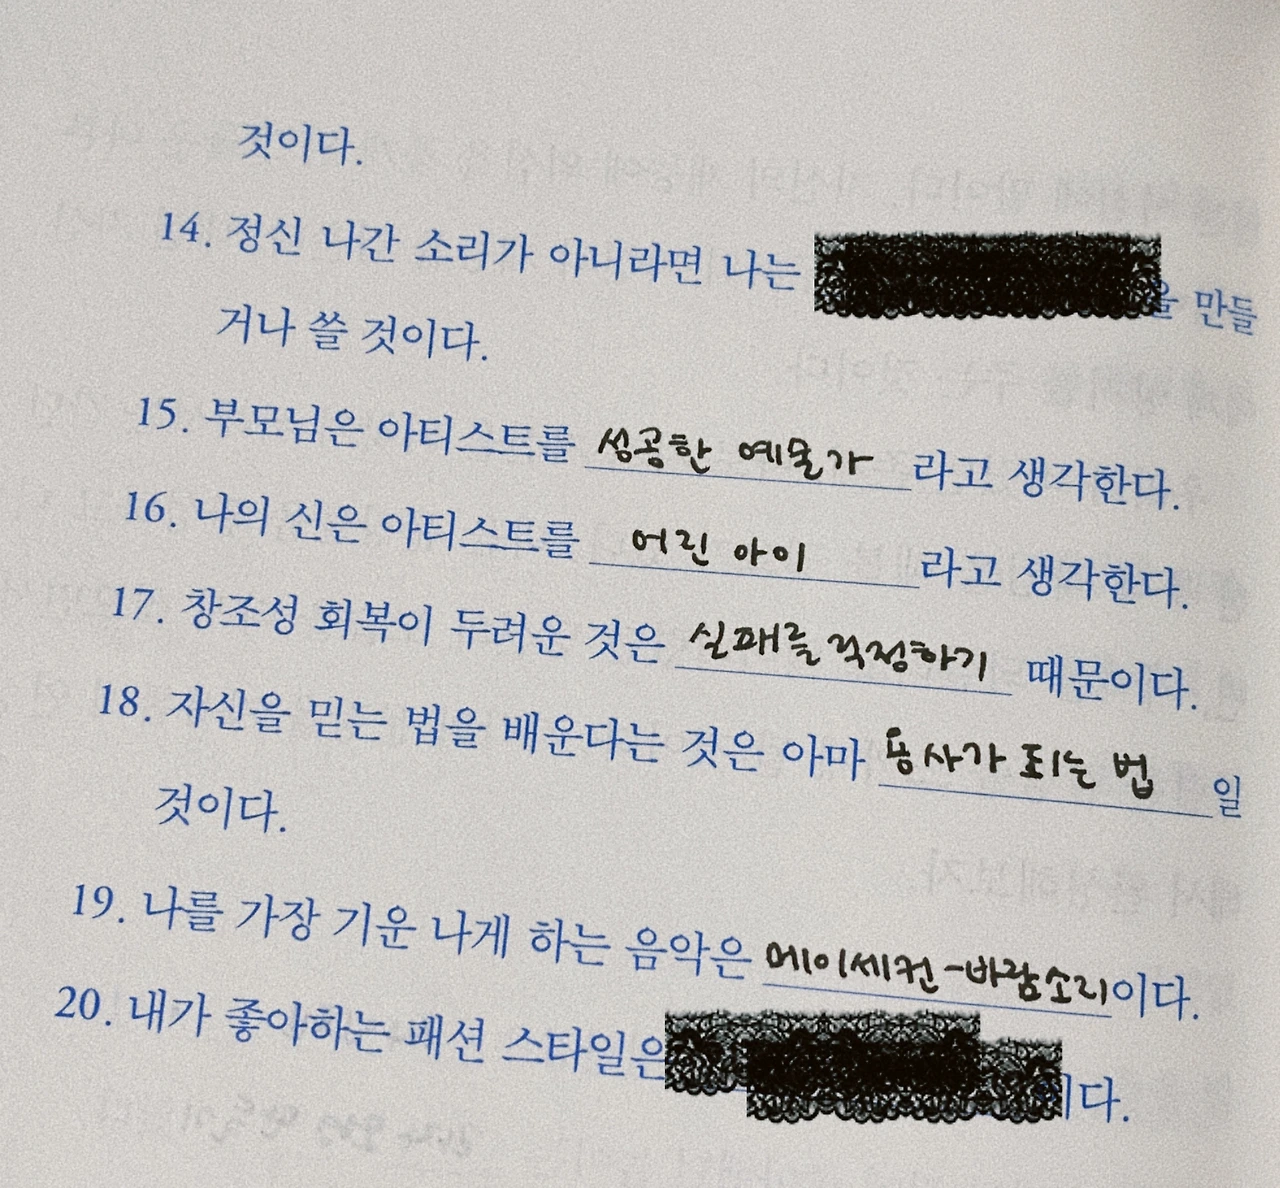 것이다.
14. 정신 나간 소리가 아니라면 나는 을 만들
거나 쓸 것이다.
15. 부모님은 아티스트를 성공한 예술가 라고 생각한다.
16. 나의 신은 아티스트를 어린 아이 라고 생각한다.
17. 창조성 회복이 두려운 것은 실패를 걱정하기 때문이다.
18. 자신을 믿는 법을 배운다는 것은 아마 용사가 되는 법 일
것이다.
19. 나를 가장 기운 나게 하는 음악은 메이세컨-바람소리이다.
20. 내가 좋아하는 패션 스타일은 이다.